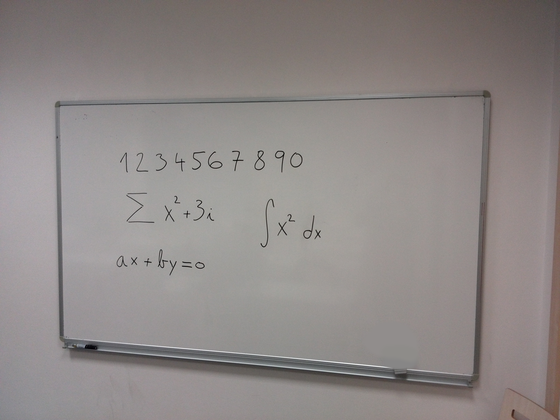 1 2 3 4 5 6 7 8 9 0
∑ x² + 3i ∫ x² dx
ax + by = 0